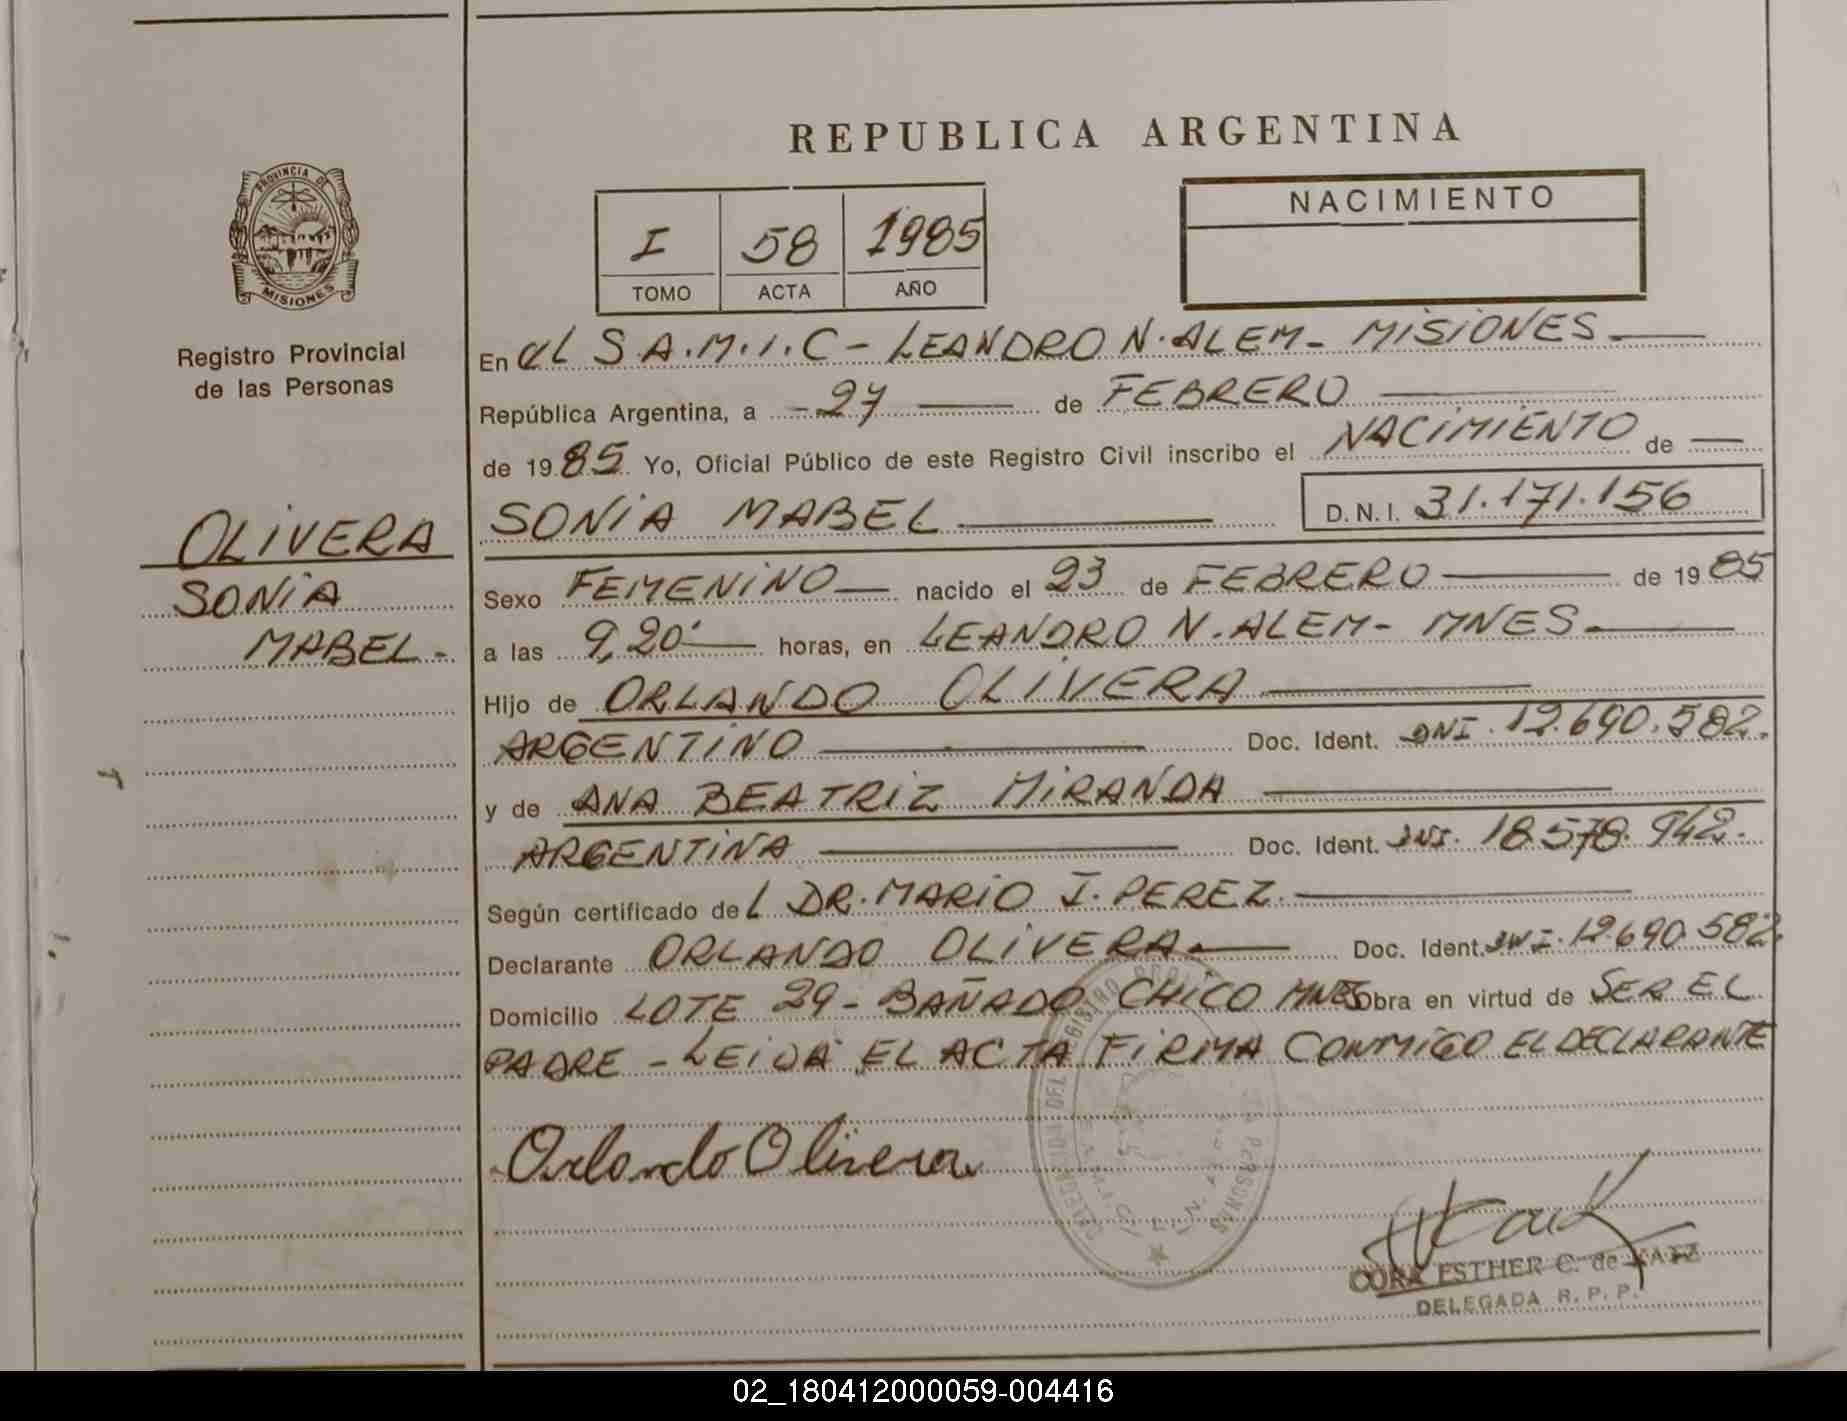 REPUBLICA ARGENTINA
PROVINCIA DE
MISIONES
Registro Provincial
de las Personas
I 58 1985
TOMO ACTA AÑO
NACIMIENTO
En el S.A.M.I.C - LEANDRO N. ALEM - MISIONES
República Argentina, a - 27 de FEBRERO
de 1985 Yo, Oficial Público de este Registro Civil inscribo el NACIMIENTO de
SONIA MABEL D.N.I. 31.171.156
OLIVERA
SONIA
MABEL -
Sexo FEMENINO nacido el 23 de FEBRERO de 1985
a las 9,20' horas, en LEANDRO N. ALEM - MNES
Hijo de ORLANDO OLIVERA
ARGENTINO Doc. Ident. DNI. 12.690.582.
y de ANA BEATRIZ MIRANDA
ARGENTINA Doc. Ident. DNI. 18.578.942.
Según certificado del DR. MARIO I. PEREZ.
Declarante ORLANDO OLIVERA Doc. Ident. DNI. 12.690.582.
Domicilio LOTE 29 - BAÑADO CHICO MNES Obra en virtud de SER EL
PADRE - LEIDA EL ACTA FIRMA CONMIGO EL DECLARANTE
Orlando Olivera
CORA ESTHER C. de KATZ
DELEGADA R.P.P.
02_180412000059-004416